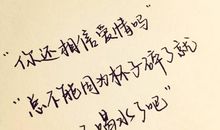 "你还相信爱情吗"
"总不能因为杯子碎了就
不喝水了吧"